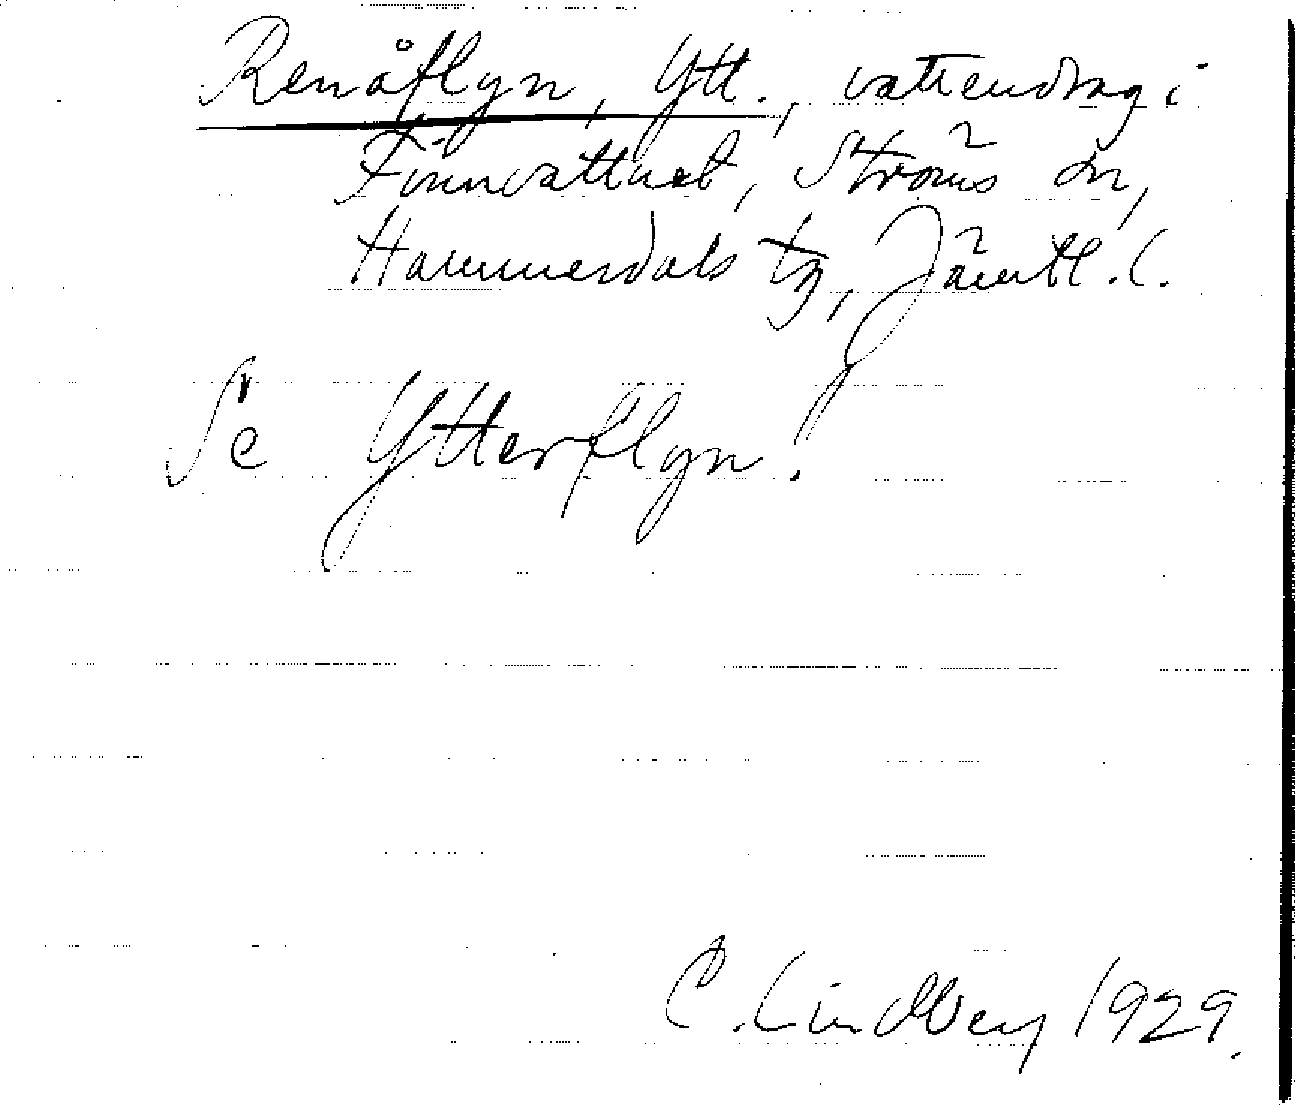 Renåflyn, Ytt., vattendrag i
Finnvattnet, Ströms sn,
Hammerdals tg, Jämtl. l.
Se Ytterflyn.
C. Lindberg 1929.